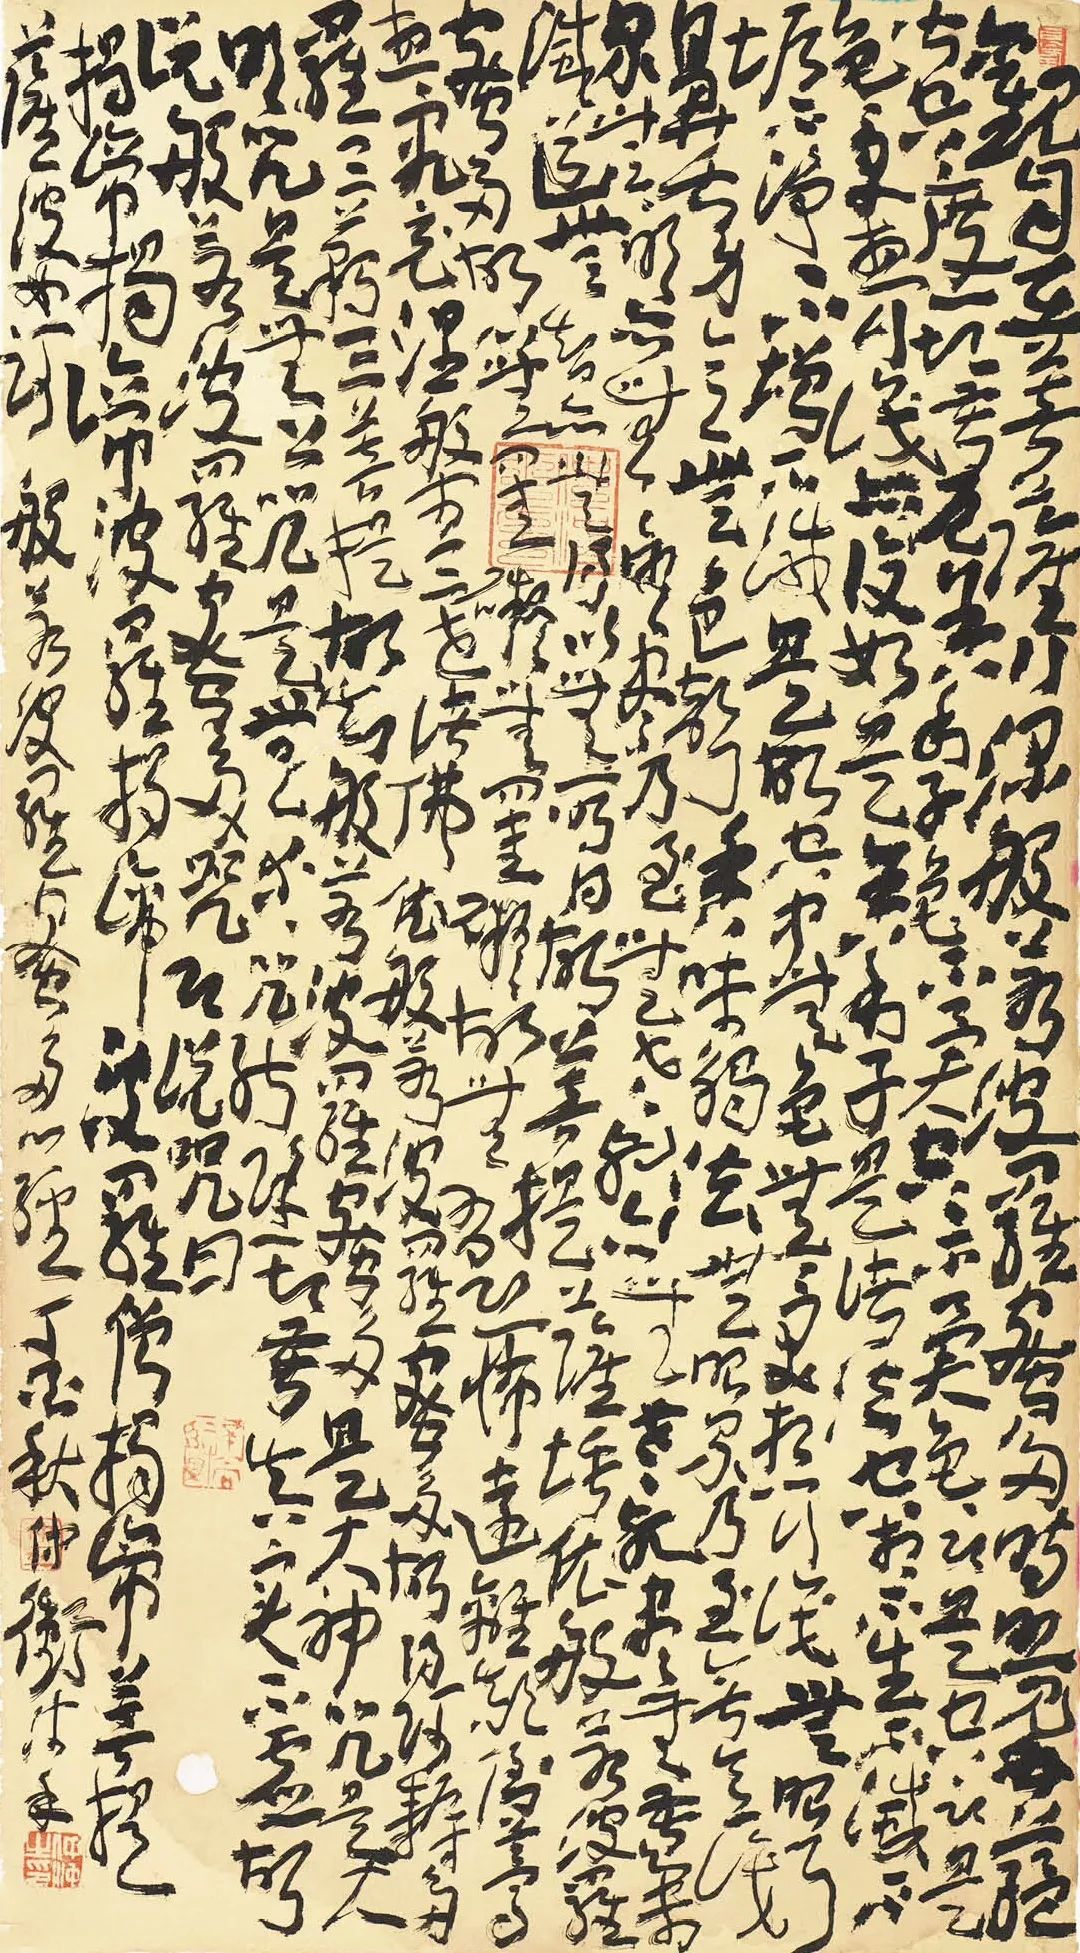 觀自在菩薩行深般若波羅蜜多時照見五蘊
皆空度一切苦厄舍利子色不異空空不異色色即是空空即是
色受想行識亦復如是舍利子是諸法空相不生不滅不
垢不淨不增不減是故空中無色無受想行識無眼耳
鼻舌身意無色聲香味觸法無眼界乃至無意識
界無無明亦無無明盡乃至無老死亦無老死盡無苦集
滅道無智亦無得以無所得故菩提薩埵依般若波羅
蜜多故心無罣礙無罣礙故無有恐怖遠離顛倒夢
想究竟涅槃三世諸佛依般若波羅蜜多故得阿耨多
羅三藐三菩提故知般若波羅蜜多是大神咒是大
明咒是無上咒是無等等咒能除一切苦真實不虛故
說般若波羅蜜多咒即說咒曰
揭諦揭諦波羅揭諦波羅僧揭諦菩提
薩婆訶 般若波羅蜜多心經 秋